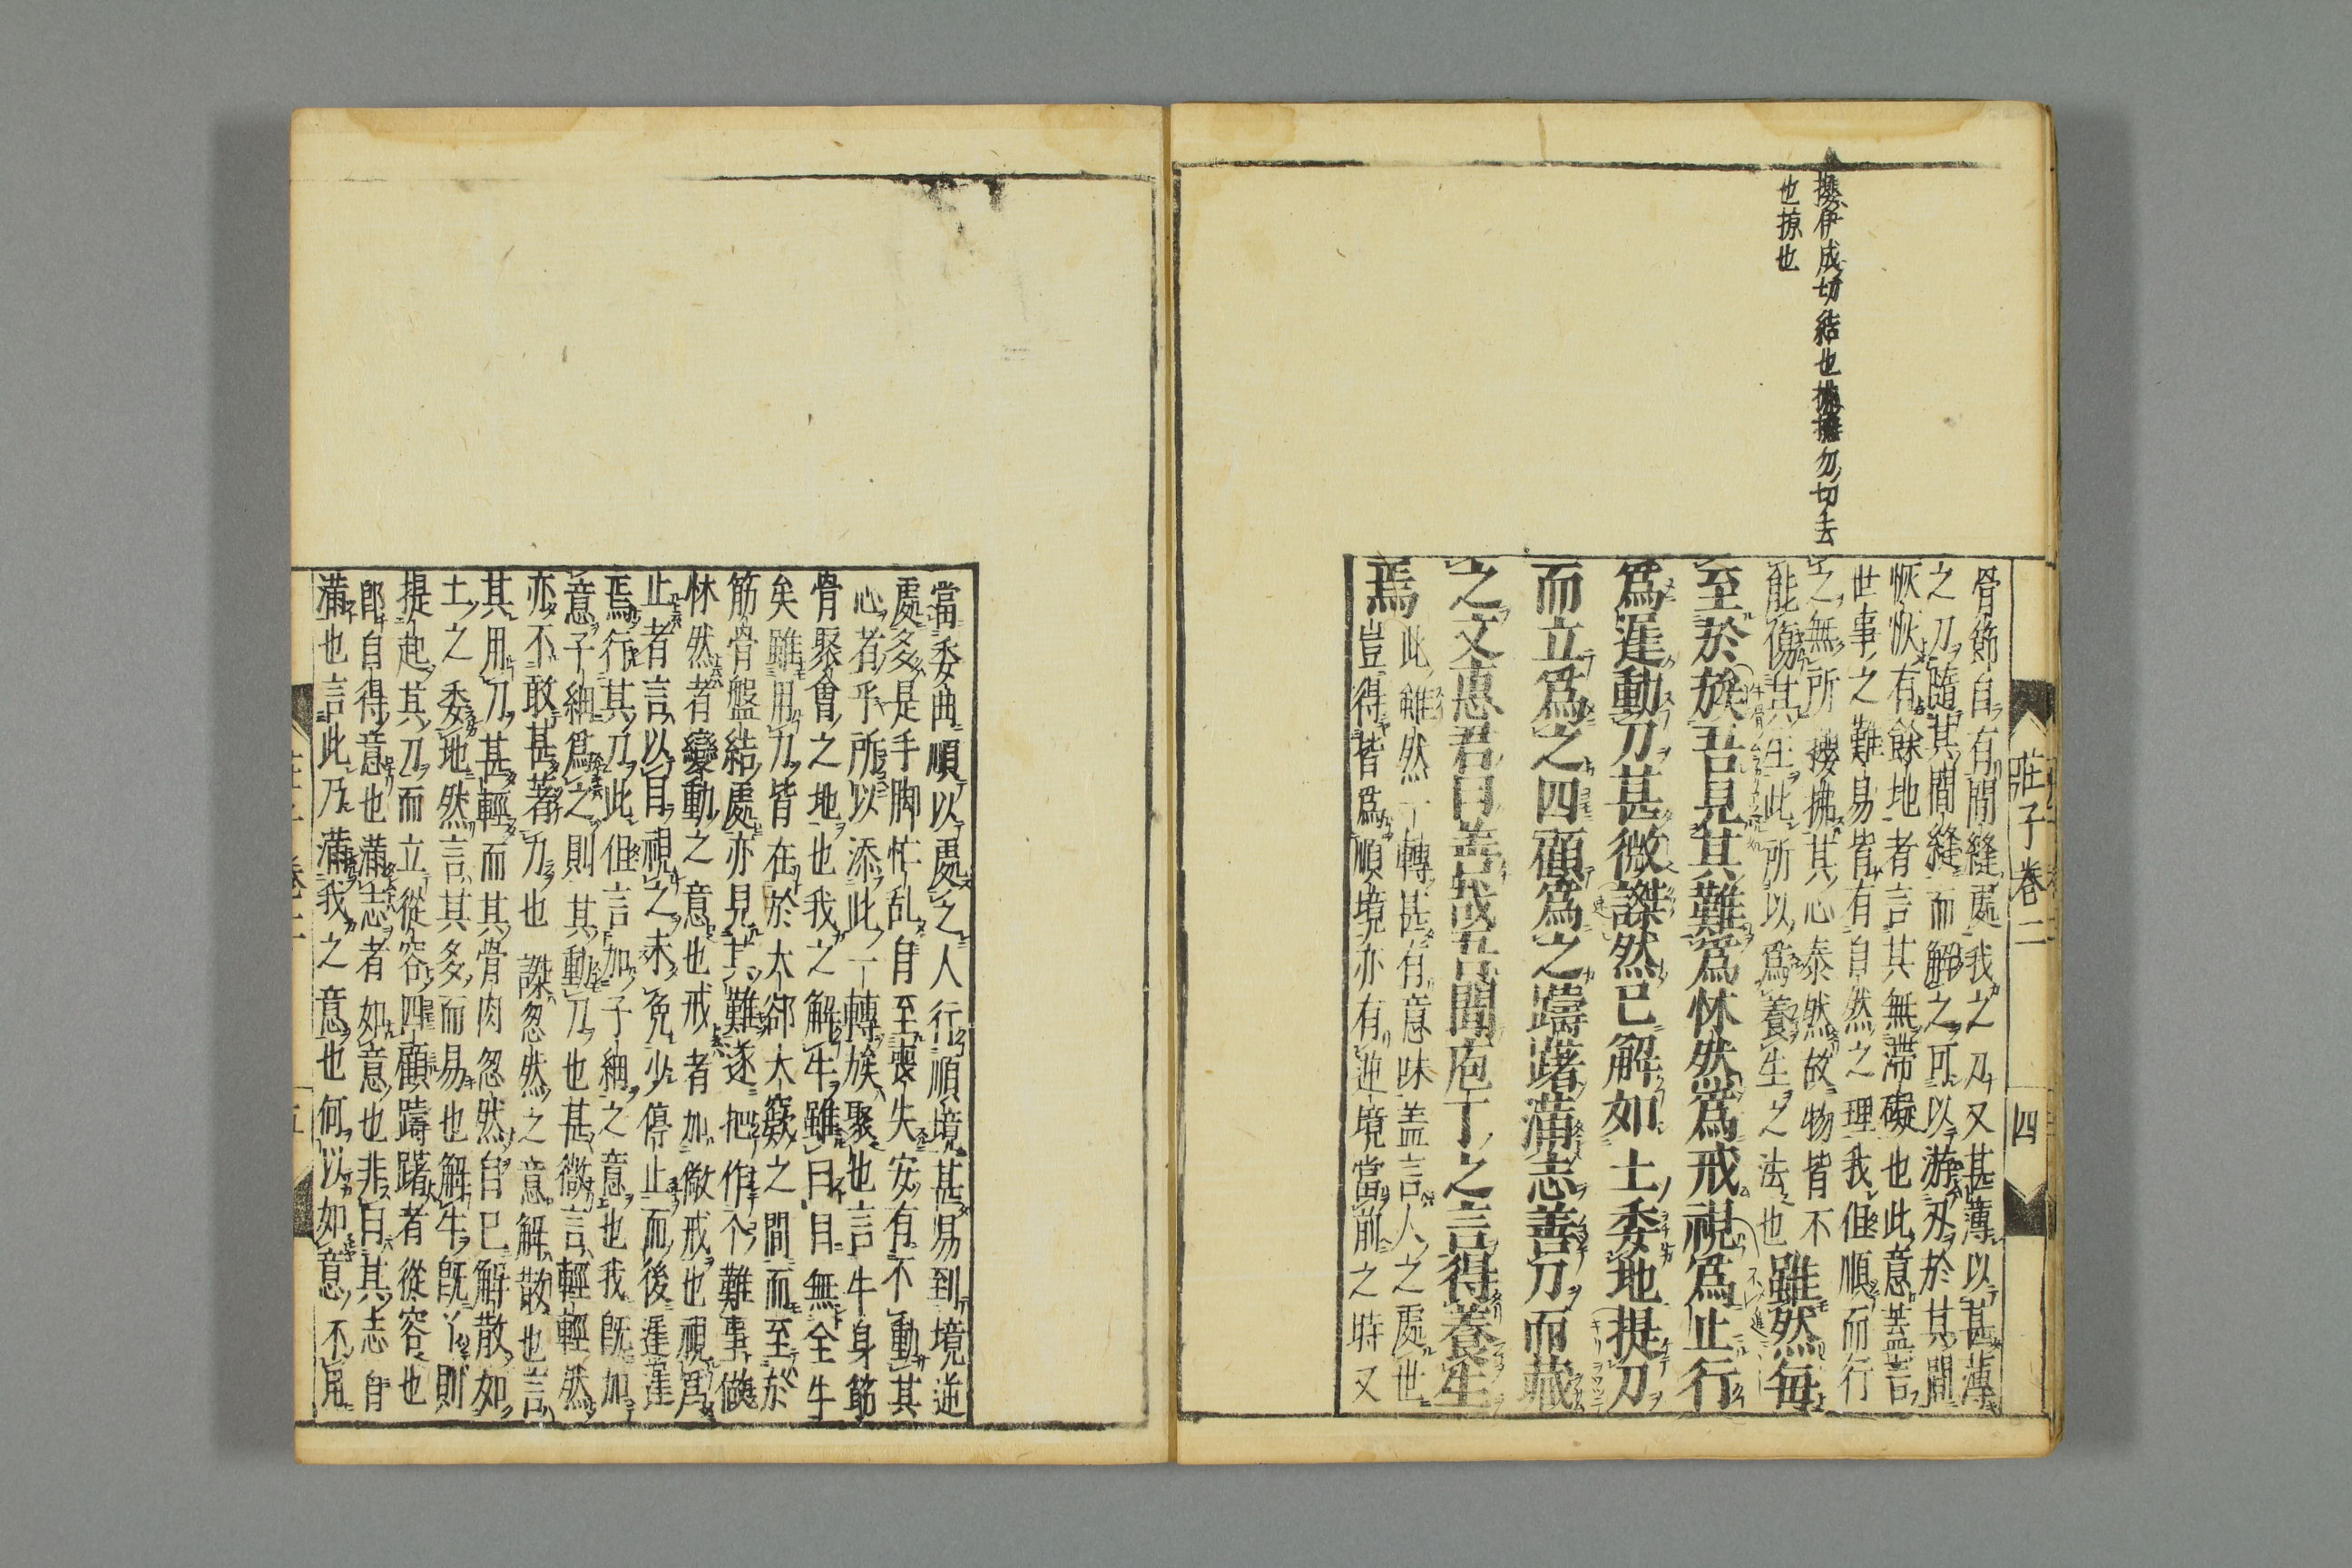 莊子卷二
四
撄伊成切結也拂撫勿切去
也掠也
骨節自有間縫處我之刀又甚薄以甚薄
之刀隨其間縫而解之可以游刃於其間
恢恢有餘地者言其無滯礙也此意蓋言
世事之難易皆有自然之理我但順而行
之無所攖拂其心泰然故物皆不
能傷其生此所以爲養生之法也雖然每
至於族吾見其難爲怵然爲戒視爲止行
爲遲動刀甚微謋然已解如土委地提刀
而立爲之四顧爲之躊躇滿志善刀而藏
之文惠君曰善哉吾聞庖丁之言得養生
焉此雖然一轉甚有意味蓋言人之處世
豈得皆爲順境亦有逆境當前之時又
當委曲順以處之人行順境甚易到境逆
處多是手脚忙乱自至喪失安有不動其
心者乎所以添此一轉族聚也言牛身筋
骨聚會之地也我之解牛雖曰目無全牛
矣雖用刀皆在於大郤大窾之間而至於
筋骨盤結處亦見其難遂把作个難事做
怵然者變動之意也戒者加儆戒也視爲
止者言以目視之未免少停止而後遲遲
焉行其刀此但言加子細之意也我既加
意子細爲之則其動刀也甚微言輕輕然
亦不敢甚著力也謋忽然之意解散也言
其用刀甚輕而其骨肉忽然自已解散如
土之委地然言其多而易也解牛既了則
提起其刀而立從容四顧躊躇者從容也
即自得意也滿志者如意也非自其志自
滿也言此乃滿我之意也何以如意不用